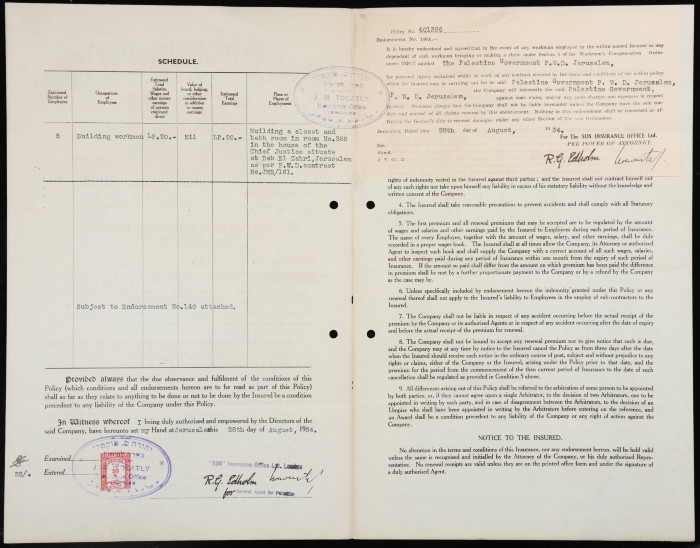 SCHEDULE.
Estimated Number of Employees
Occupations of Employees
Estimated Total Salaries, Wages and other money earnings of persons employed direct
Value of board, lodging, or other consideration in addition to money earnings
Estimated Total Earnings
Place or Places of Employment
5
Building workmen
LP.20.-
Nil
LP.20.-
Building a closet and
bath room in room No.
in the house of the
Chief Justice situate
at Bab El Zahri, Jerusalem
as per P.W.D. contract
No.JMM/161.
Subject to Endorsement No.140 attached.
Provided always that the due observance and fulfilment of the conditions of this
Policy (which conditions and all endorsements hereon are to be read as part of this Policy)
shall so far as they relate to anything to be done or not to be done by the Insured be a condition
precedent to any liability of the Company under this Policy.
In Witness whereof I being duly authorised and empowered by the Directors of the
said Company, have hereunto set my Hand at Jerusalem this 28th day of August, 1934.
Examined
Entered
J. M. TOCATLY
"SUN" Insurance Office Ltd. London
R.G. Edholm
for General Agent for Palestine
J. M. TOCATLY
Insurance Office
Policy No. 601396
Endorsement No. 140A.—
It is hereby understood and agreed that in the event of any workman employed by the within named Insured or any
dependant of such workman bringing or making a claim under Section 5 of the Workmen's Compensation Ordin-
ance 1927 against The Palestine Government P.W.D. Jerusalem,
for personal injury sustained whilst at work on any contract covered by the terms and conditions of the within policy
which the Insured may be carrying out for the said Palestine Government P. W. D. Jerusalem,
the Company will indemnify the said Palestine Government,
P. W. D. Jerusalem, against such claim and/or any such charges and expenses in respect
thereof. Provided always that the Company shall not be liable hereunder unless the Company have the sole con-
duct and control of all claims covered by this endorsement.
Jerusalem, Dated this 28th day of August, 1934.
For The SUN INSURANCE OFFICE Ltd.
PER POWER OF ATTORNEY
R.G. Edholm
rights of indemnity vested in the Insured against third parties; and the Insured shall not commit himself out
of any such rights nor take upon himself any liability in excess of his statutory liability without the knowledge and
written consent of the Company.
4. The Insured shall take reasonable precautions to prevent accidents and shall comply with all Statutory
obligations.
5. The first premium and all renewal premiums that may be accepted are to be regulated by the amount
of wages and salaries and other earnings paid by the Insured to Employees during each period of Insurance.
The name of every Employee, together with the amount of wages, salary, and other earnings, shall be duly
recorded in a proper wages book. The Insured shall at all times allow the Company, its Attorney or authorised
Agent to inspect such book and shall supply the Company with a correct account of all such wages, salaries,
and other earnings paid during any period of Insurance within one month from the expiry of such period of
Insurance. If the amount so paid shall differ from the amount on which premium has been paid the difference
in premium shall be met by a further proportionate payment to the Company or by a refund by the Company
as the case may be.
6. Unless specifically included by endorsement hereon the indemnity granted under this Policy or any
renewal thereof shall not apply to the Insured's liability to Employees in the employ of sub-contractors to the
Insured.
7. The Company shall not be liable in respect of any accident occurring before the actual receipt of the
premium by the Company or its authorised Agents or in respect of any accident occurring after the date of expiry
and before the actual receipt of the premium for renewal.
8. The Company shall not be bound to accept any renewal premium nor to give notice that such is due,
and the Company may at any time by notice to the Insured cancel the Policy as from three days after the date
when the Insured should receive such notice in the ordinary course of post, subject and without prejudice to any
rights or claims, either of the Company or the Insured, arising under the Policy prior to that date, and the
premium for the period from the commencement of the then current period of Insurance to the date of such
cancellation shall be regulated as provided in Condition 5 above.
9. All differences arising out of this Policy shall be referred to the arbitration of some person to be appointed
by both parties, or, if they cannot agree upon a single Arbitrator, to the decision of two Arbitrators, one to be
appointed in writing by each party, and in case of disagreement between the Arbitrators, to the decision of an
Umpire who shall have been appointed in writing by the Arbitrators before entering on the reference, and
an Award shall be a condition precedent to any liability of the Company or any right of action against the
Company.
NOTICE TO THE INSURED.
No alteration in the terms and conditions of this Insurance, nor any endorsement hereon, will be held valid
unless the same is recognised and initialled by the Attorney of the Company, or his duly authorised Repre-
sentative. No renewal receipts are valid unless they are on the printed office form and under the signature of
a duly authorised Agent.